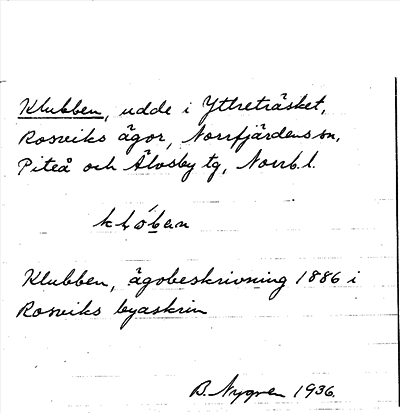 Klubben, udde i Yttreträsket,
Rosviks ägor, Norrfjärdens sn,
Piteå och Älvsby tg, Norrb. l.
Klubben, ägobeskrivning 1886 i
Rosviks byaskrin
B. Nygren 1936.